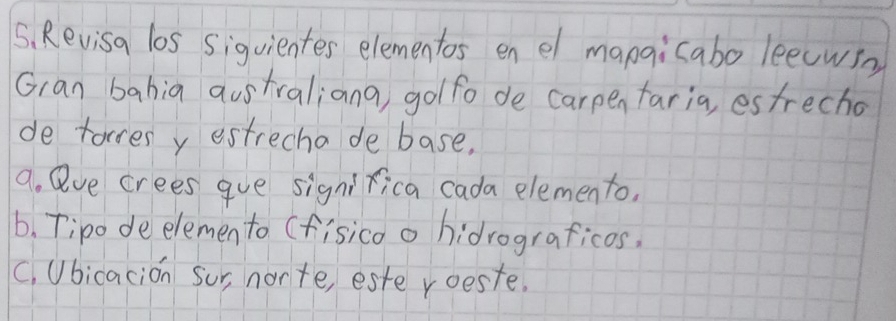 5. Revisa los siguientes elementos en el mapa: cabo leeuwin
Gran bahia australiana, golfo de carpentaria, estrecho
de torres y estrecha de base.
a. Que crees que significa cada elemento.
b. Tipo de elemento (físico o hidrograficos.
c. Ubicación sur, norte, este y oeste.